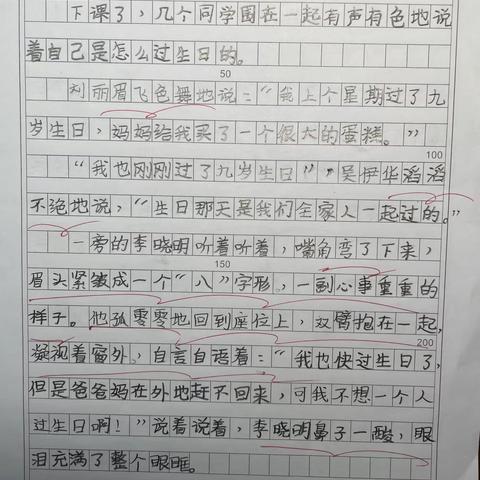 下课了，几个同学围在一起有声有色地说
着自己是怎么过生日的。
50
刘丽眉飞色舞地说：“我上个星期过了九
岁生日，妈妈给我买了一个很大的蛋糕。”
100
“我也刚刚过了九岁生日”，吴伊华滔滔
不绝地说，“生日那天是我们全家人一起过的。”
一旁的李晓明听着听着，嘴角弯了下来，
150
眉头紧皱成一个“八”字形，一副心事重重的
样子。他孤零零地回到座位上，双臂抱在一起，
200
凝视着窗外，自言自语着：“我也快过生日了，
但是爸爸妈在外地赶不回来，可我不想一个人
过生日啊！”说着说着，李晓明鼻子一酸，眼
泪充满了整个眼眶。